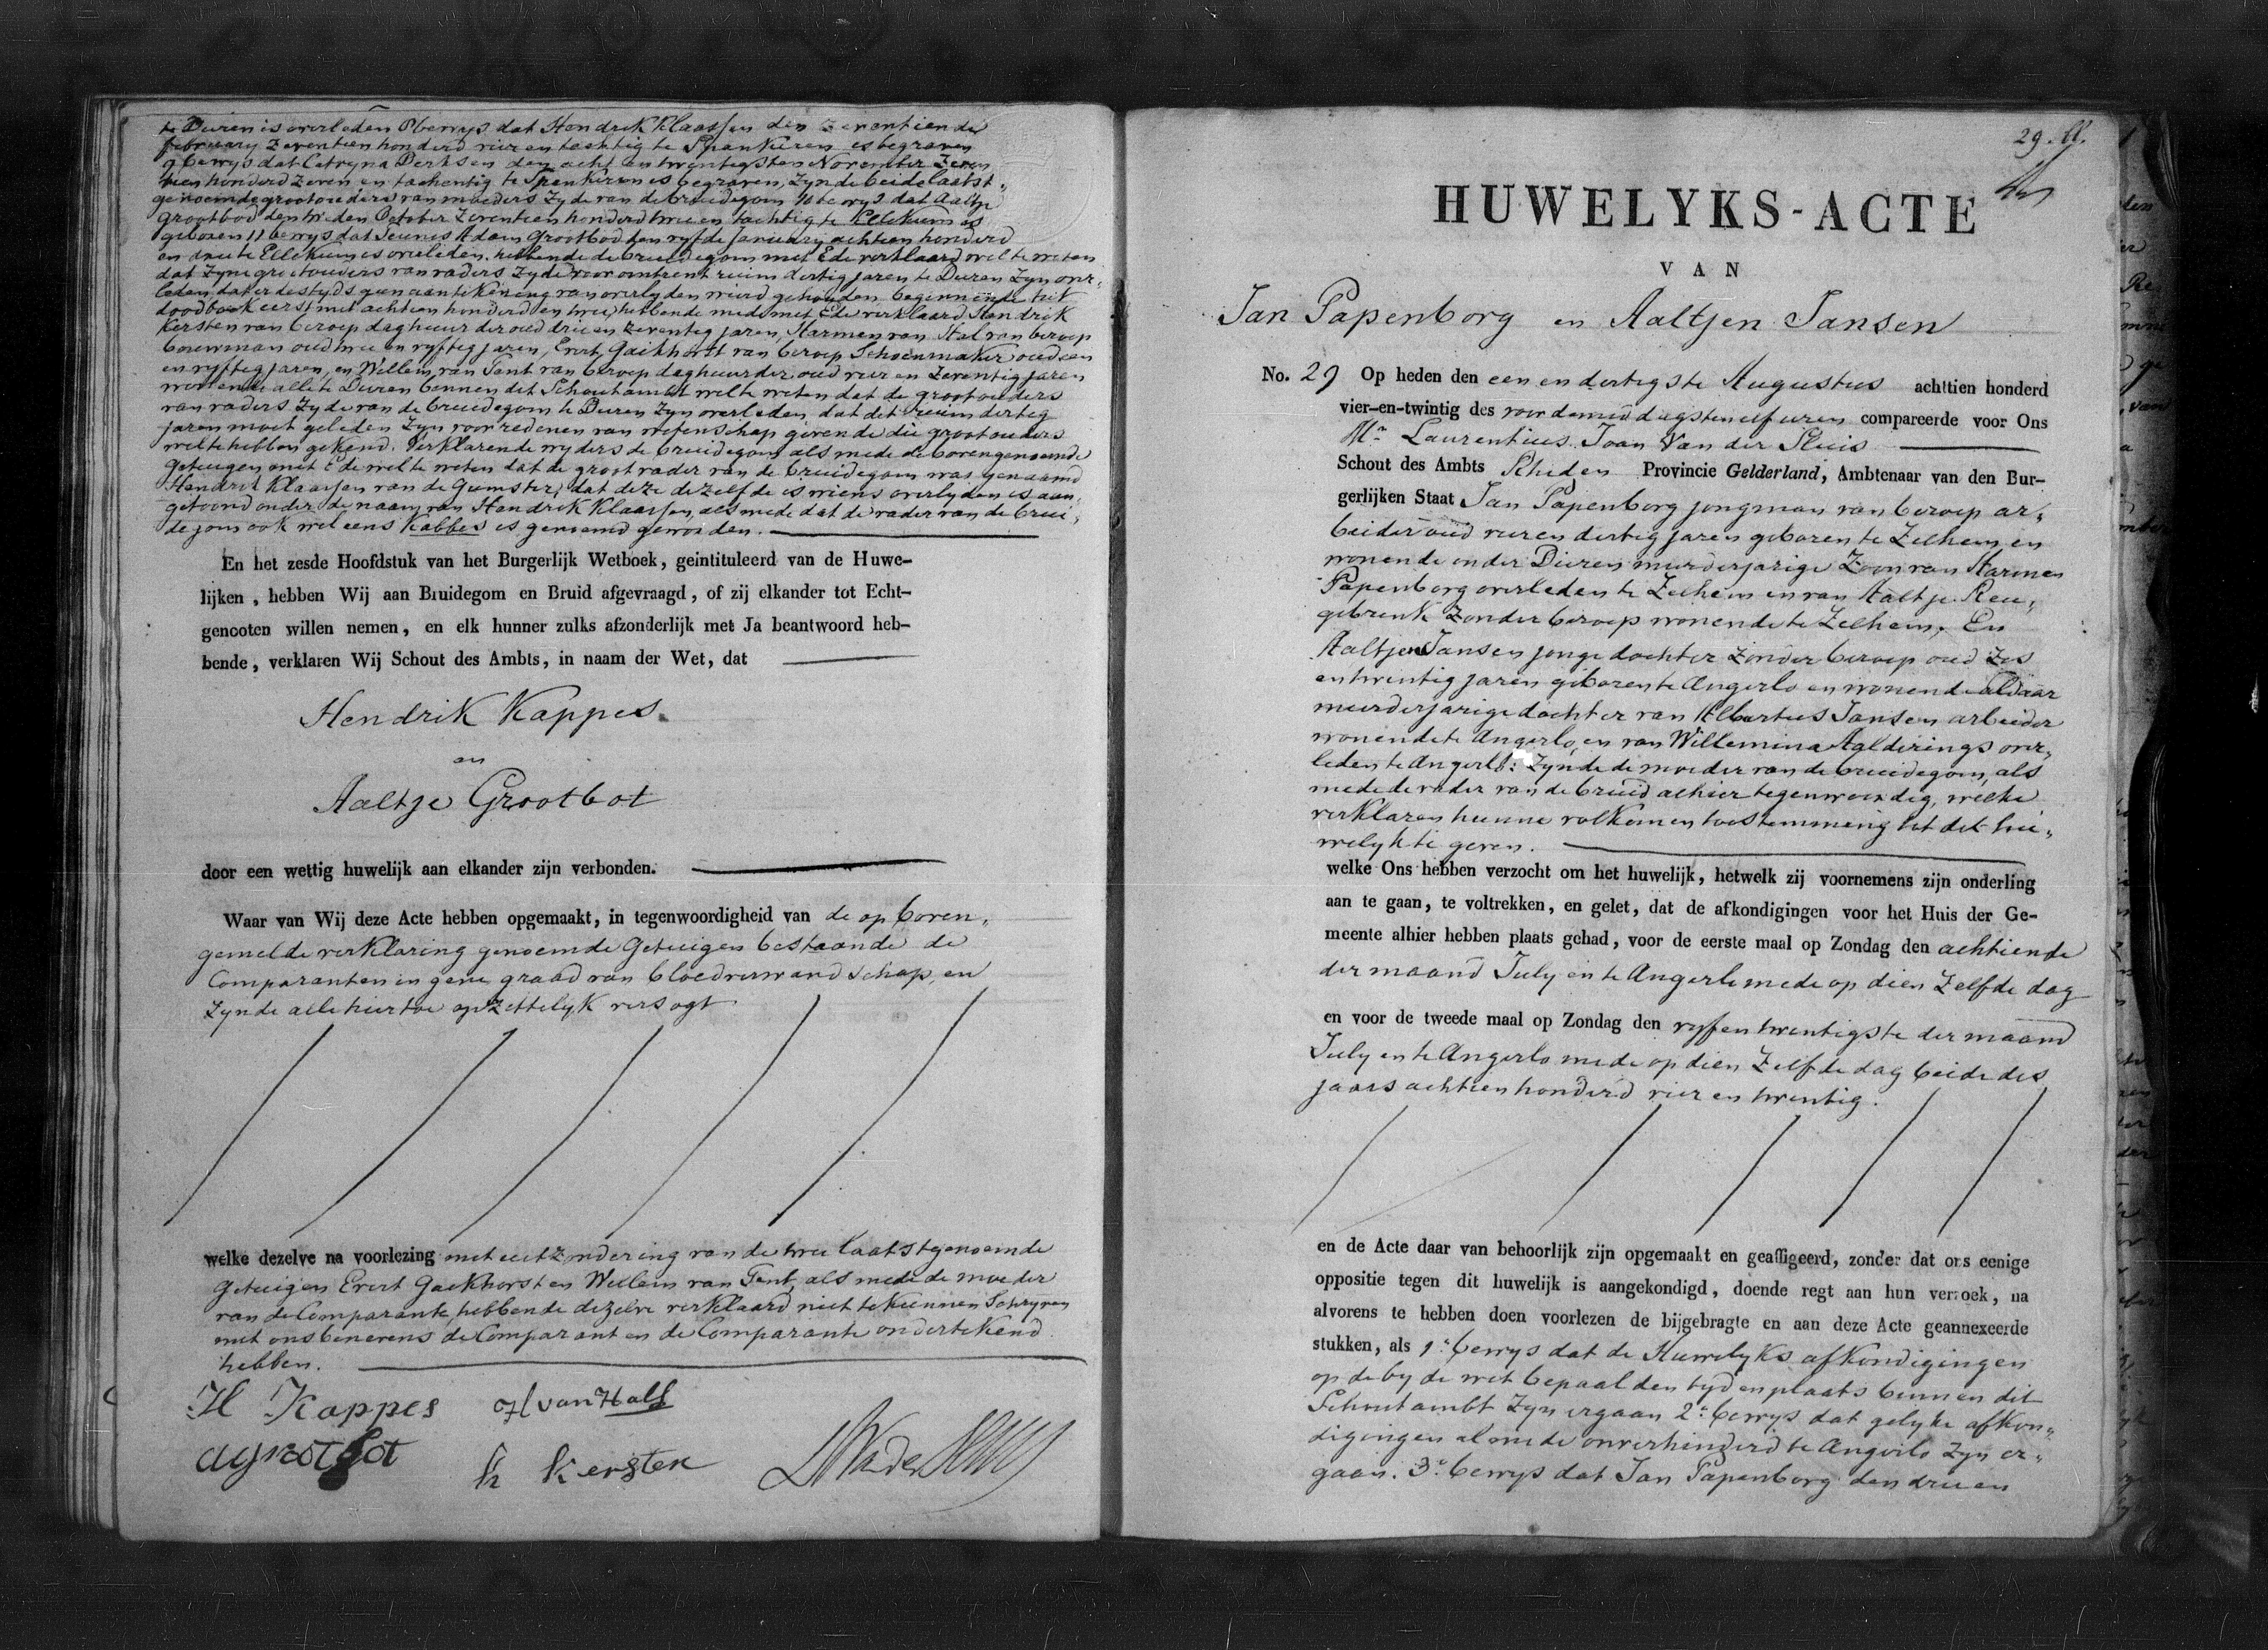 te Dieren is overleden 8 bewys dat Hendrik Klaassen den zeventiende
february zeventien honderd vier en tachtig te Spankeren is begraven
9 bewys dat Catryna Derksen den acht en twintigsten November zeven
tien honderd zeven en tachentig te Spankeren is begraven, zynde beide laatst„
genoemde grootouders van moeders zyde van de bruidegom 10 bewys dat Aaltje
Grootbod den tweeden October zeventien honderd twee en tachtig te Ellekum is
geboren 11 bewys dat Teunis Adam Grootbod den vyfde January achtien honderd
en drie te Ellekum is overleden. hebbende de bruidegom met Ede verklaard wel te weten
dat zyne grootouders van vaders zyde voor omtrent ruim dertig jaren te Dieren zyn over„
leden, dat er destyds geen aantekening van overlyden wierd gehouden beginnende het
doodboek eerst met achtien honderd en twee, hebbende mede met Ede verklaard Hendrik
Kersten van beroep daghuurder oud drie en zeventig jaren, Harmen van Hal van beroep
bouwman oud twee en vyftig jaren, Evert Gaikhorst van beroep Schoenmaker oud een
en vyftig jaren, en Willem van Tent van beroep daghuurder oud vier en zeventig jaren
wonende alle te Dieren binnen dit Schoutambt wel te weten dat de grootouders
van vaders zyde van de bruidegom te Dieren zyn overleden, dat dit ruim dertig
jaren moet geleden zyn voor redenen van wetenschap gevende die grootouders
wel te hebben gekend. Verklarende wyders de bruidegom als mede de bovengenoemde
getuigen met Ede wel te weten dat de grootvader van de bruidegom was genaamd
Hendrik Klaassen van de Gumster, dat deze dezelfde is wiens overlyden is aan„
getoond onder de naam van Hendrik Klaassen, als mede dat de vader van de brui„
degom ook wel eens Kabbes is genoemd geworden.
En het zesde Hoofdstuk van het Burgerlijk Wetboek, geintituleerd van de Huwe-
lijken, hebben Wij aan Bruidegom en Bruid afgevraagd, of zij elkander tot Echt-
genooten willen nemen, en elk hunner zulks afzonderlijk met Ja beantwoord heb-
bende, verklaren Wij Schout des Ambts, in naam der Wet, dat
Hendrik Kappes
en
Aaltje Grootbot
door een wettig huwelijk aan elkander zijn verbonden.
Waar van Wij deze Acte hebben opgemaakt, in tegenwoordigheid van de op boven„
gemelde verklaring genoemde Getuigen bestaande de
Comparanten in gene graad van bloedverwandschap, en
zynde alle hiertoe opzettelyk versogt
welke dezelve na voorlezing met uitzondering van de twee laatstgenoemde
Getuigen Evert Gaikhorst en Willem van Tent, als mede de moeder
van de Comparante, hebbende dezelve verklaard niet te kunnen Schryven
met ons benevens de Comparant en de Comparante ondertekend
hebben.
H Kappes H van Hall
agrotbot h Kersten
29. 
HUWELYKS-ACTE
VAN
Jan Papenborg en Aaltjen Jansen
No. 29 Op heden den een en dertigste Augustus achttien honderd
vier-en-twintig des voor de middags ten elf uren compareerde voor Ons
Mr Laurentius Joan Van der Sluis
Schout des Ambts Rheden Provincie Gelderland, Ambtenaar van den Bur-
gerlijken Staat Jan Papenborg jongman van beroep ar„
beider oud vier en dertig jaren geboren te Zelhem en
wonende onder Dieren meerderjarige Zoon van Harmen
Papenborg overleden te Zelhem en van Aaltje Reu„
gebrink zonder beroep wonende te Zelhem. En
Aaltjen Jansen jonge dochter zonder beroep oud zes
en twintig jaren geboren te Angerlo en wonende aldaar
meerderjarige dochter van Albartus Jansen arbeider
wonende te Angerlo, en van Willemina Aalderings over„
leden te Angerlo: Zynde de moeder van de bruidegom, als
mede de vader van de bruid alhier tegenwoordig, welke
verklaren hunne volkomen toestemming tot dit hu„
welyk te geven.
welke Ons hebben verzocht om het huwelijk, hetwelk zij voornemens zijn onderling
aan te gaan, te voltrekken, en gelet, dat de afkondigingen voor het Huis der Ge-
meente alhier hebben plaats gehad, voor de eerste maal op Zondag den achtiende
der maand July en te Angerlo mede op dien zelfde dag
en voor de tweede maal op Zondag den vyfentwintigste der maand
July en te Angerlo mede op dien zelfde dag beide des
jaars achtien honderd vier en twintig.
en de Acte daar van behoorlijk zijn opgemaakt en geaffigeerd, zonder dat ons eenige
oppositie tegen dit huwelijk is aangekondigd, doende regt aan hun verzoek, na
alvorens te hebben doen voorlezen de bijgebragte en aan deze Acte geannexeerde
stukken, als 1e bewys dat de Huwelyks afkondigingen
op de by de wet bepaalden tyd en plaats binnen dit
Schoutambt zyn ergaan 2e bewys dat gelyke afkon„
digingen al mede onverhinderd te Angerlo zyn er„
gaan. 3e bewys dat Jan Papenborg den drie en